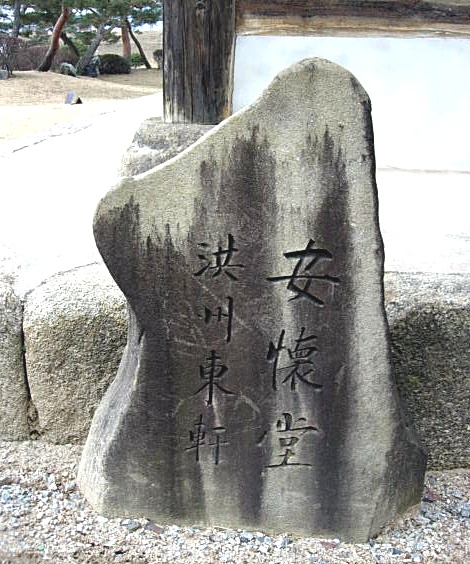 安懷堂
洪州東軒